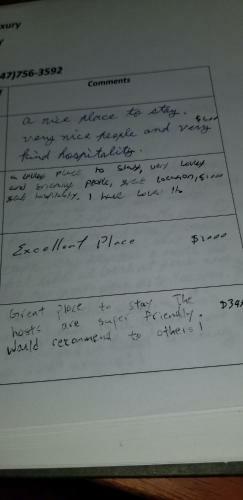 xury
y
47)756-3592
Comments
a nice place to stay. $600
very nice people and very
kind hospitality.
a place to stay, very lovely
and friendly people, great location, $1000
great hospitality. I have
Excellent Place $1000
Great place to stay The
hosts are super friendly.
Would recommend to others!